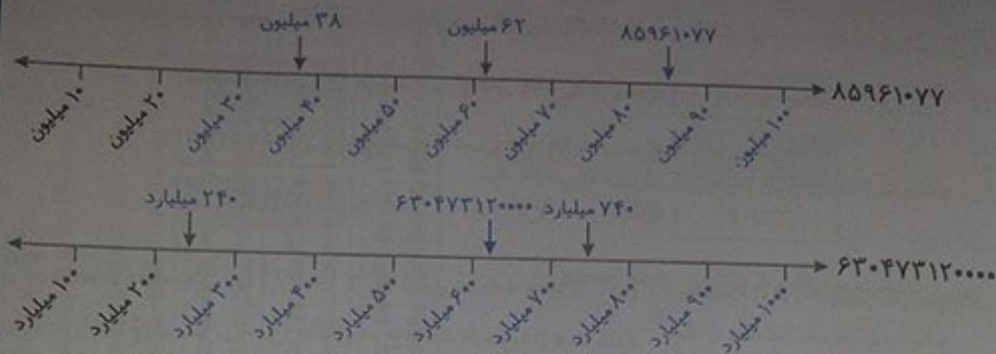 ۳۸ میلیون ۶۲ میلیون ۸۵۹۶۱۰۷۷
۸۵۹۶۱۰۷۷
۱۰ میلیون ۲۰ میلیون ۳۰ میلیون ۴۰ میلیون ۵۰ میلیون ۶۰ میلیون ۷۰ میلیون ۸۰ میلیون ۹۰ میلیون ۱۰۰ میلیون
۲۴۰ میلیارد ۶۳۰۴۷۳۱۲۰۰۰۰ ۷۴۰ میلیارد
۶۳۰۴۷۳۱۲۰۰۰۰
۱۰۰ میلیارد ۲۰۰ میلیارد ۳۰۰ میلیارد ۴۰۰ میلیارد ۵۰۰ میلیارد ۶۰۰ میلیارد ۷۰۰ میلیارد ۸۰۰ میلیارد ۹۰۰ میلیارد ۱۰۰۰ میلیارد